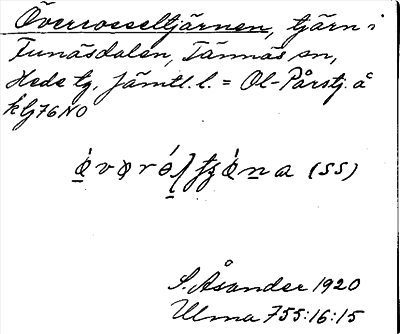 Överrosseltjärnen, tjärn i
Funäsdalen, Tännäs sn,
Hede tg. Jämtl. l. = Ol-Pårstj. å
klj76NO
(SS)
S. Åsander 1920
Ulma 755:16:15